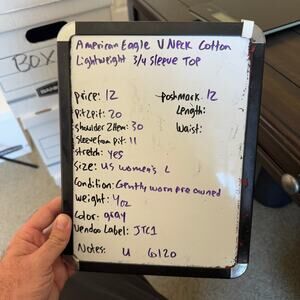 American Eagle V Neck Cotton
Lightweight 3/4 sleeve Top
price: 12
poshmark: 12
pit2pit: 20
Length:
shoulder 2 Hem: 30
Waist:
sleeve from pit: 11
stretch: yes
size: US women's L
Condition: Gently worn pre owned
weight: 4oz
Color: gray
Vendoo Label: JTC1
Notes: U 6/20
BOX